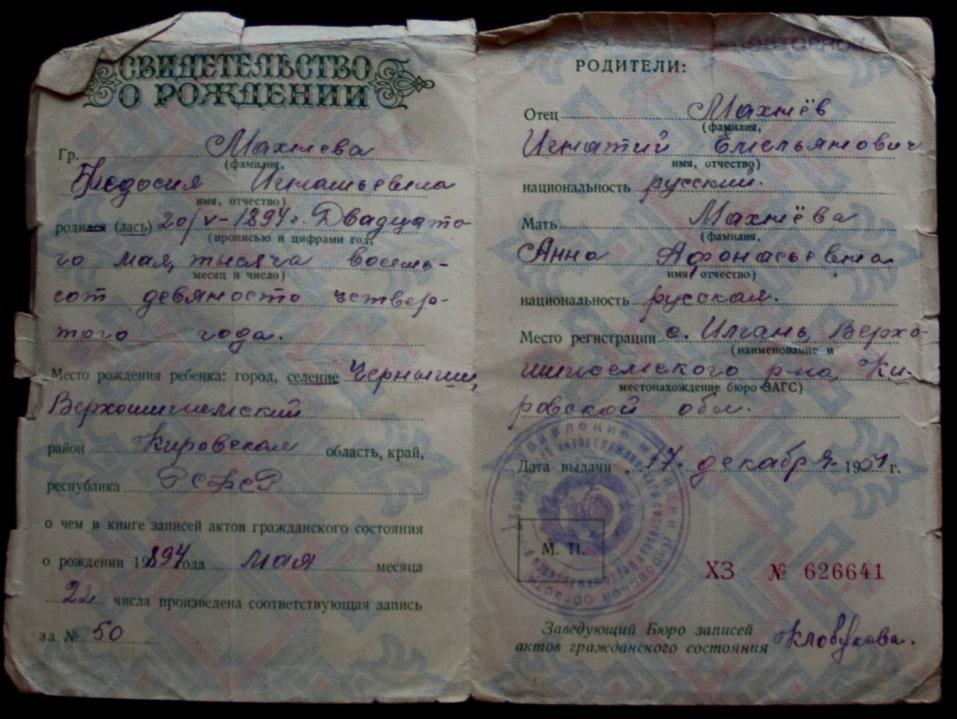 СВИДЕТЕЛЬСТВО
О РОЖДЕНИИ
Гр. Махнева
(фамилия,
Федосия Игнатьевна
имя, отчество)
родился (лась) 20/V-1894 г. Двадцато
(прописью и цифрами год,
го мая, тысяча восемь-
месяц и число)
сот девяносто четвер-
того года.
Место рождения ребенка: город, селение Черныши,
Верхошижемский
район Кировская область, край,
республика РСФСР
о чем в книге записей актов гражданского состояния
о рождении 1894 года мая месяца
22 числа произведена соответствующая запись
за № 50
ПОВТОРНОЕ
РОДИТЕЛИ:
Отец Махнёв
(фамилия,
Игнатий Емельянович
имя, отчество)
национальность русский.
Мать Махнёва
(фамилия,
Анна Афонасьевна
имя, отчество)
национальность русская.
Место регистрации с. Илгань, Верхо
(наименование и
шижемского р-на, Ки-
местонахождение бюро ЗАГС)
ровской обл.
Дата выдачи 17. декабря 1951 г.
М. П.
ХЗ № 626641
Заведующий Бюро записей
актов гражданского состояния Клобукова.